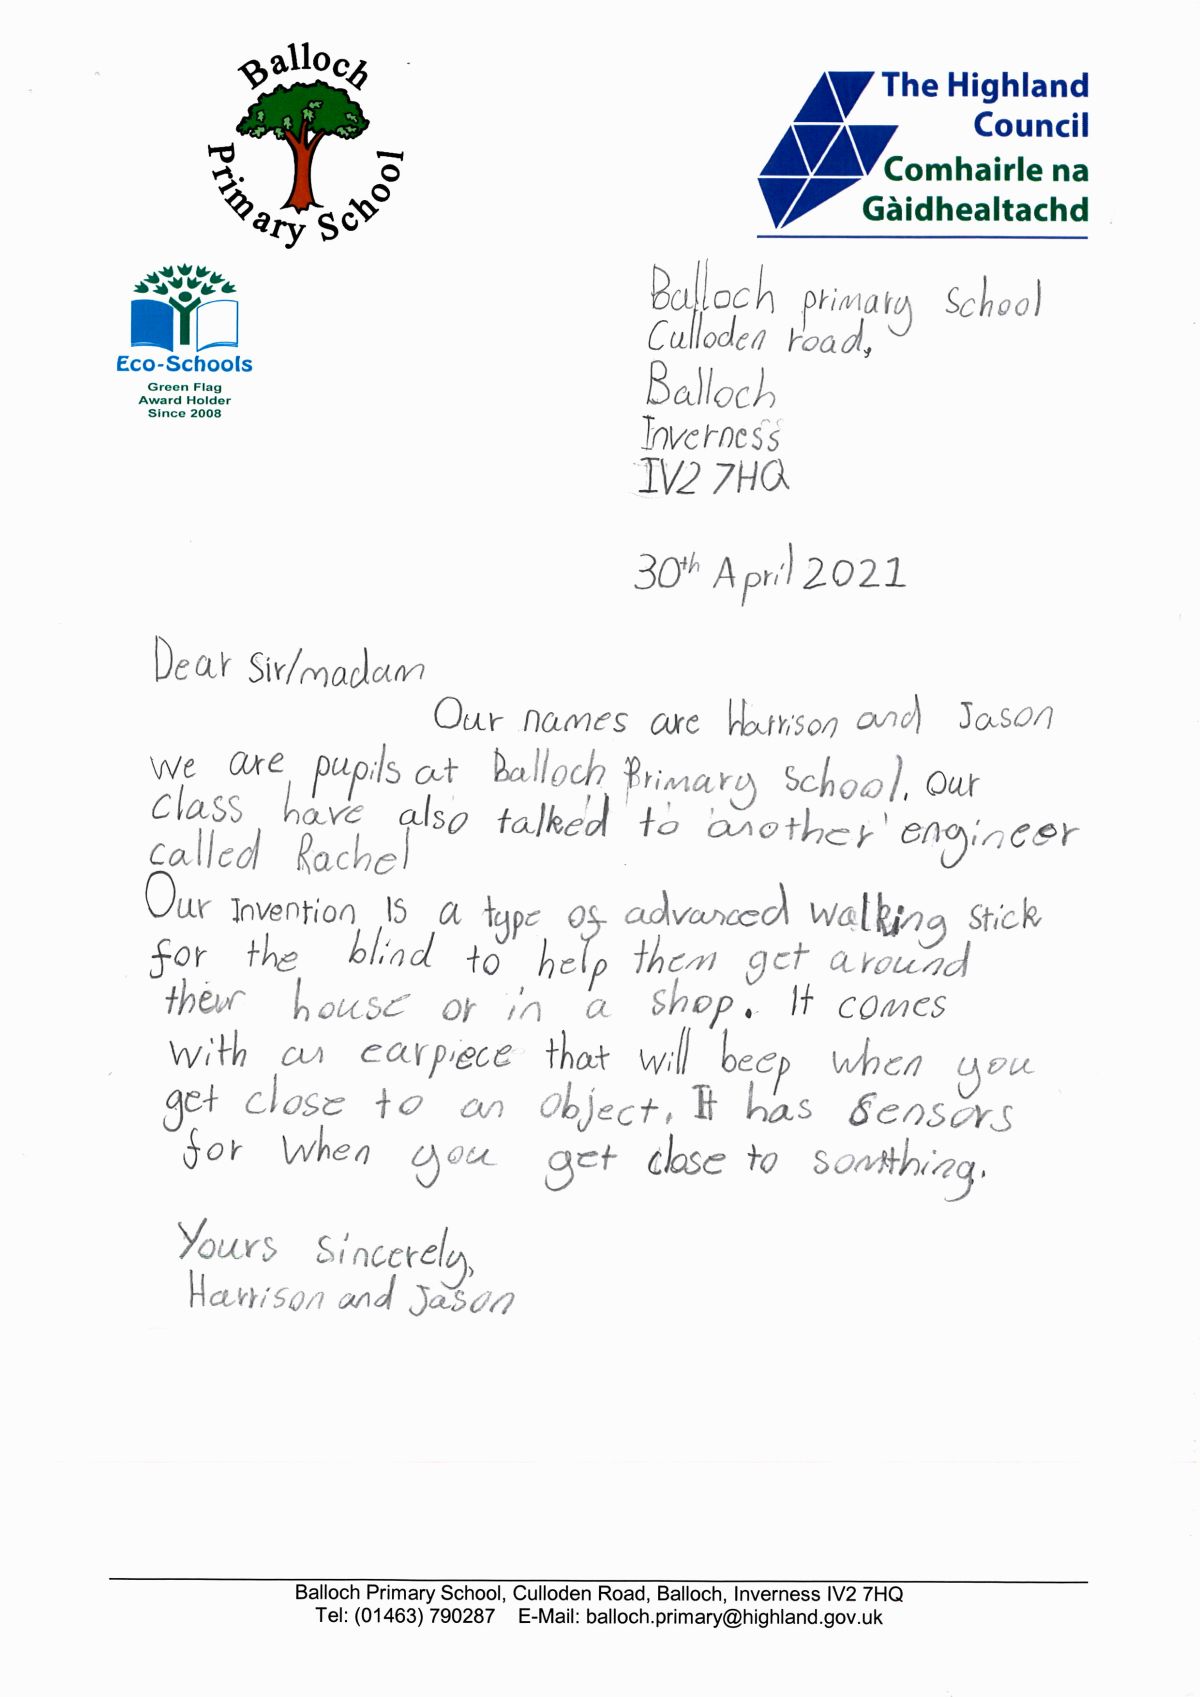 Balloch
Primary School
The Highland
Council
Comhairle na
Gàidhealtachd
Eco-Schools
Green Flag
Award Holder
Since 2008
Balloch primary School
Culloden road,
Balloch
Inverness
IV2 7HQ
30th April 2021
Dear Sir/madam
Our names are Harrison and Jason
We are pupils at Balloch Primary School. Our
class have also talked to another engineer
called Rachel
Our Invention is a type of advanced walking stick
for the blind to help them get around
their house or in a shop. It comes
with an earpiece that will beep when you
get close to an object. It has sensors
for when you get close to somthing.
Yours sincerely,
Harrison and Jason
Balloch Primary School, Culloden Road, Balloch, Inverness IV2 7HQ
Tel: (01463) 790287 E-Mail: balloch.primary@highland.gov.uk